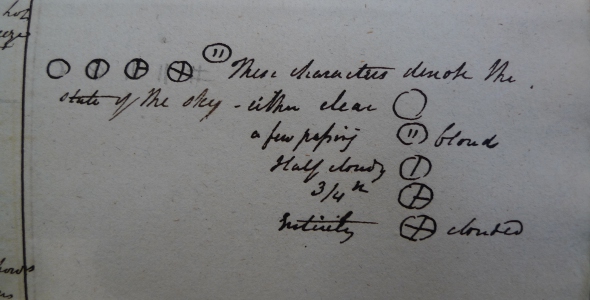 These characters denote the
state of the sky - either clear
a few passing clouds
Half cloudy
3/4 "
Entirely clouded